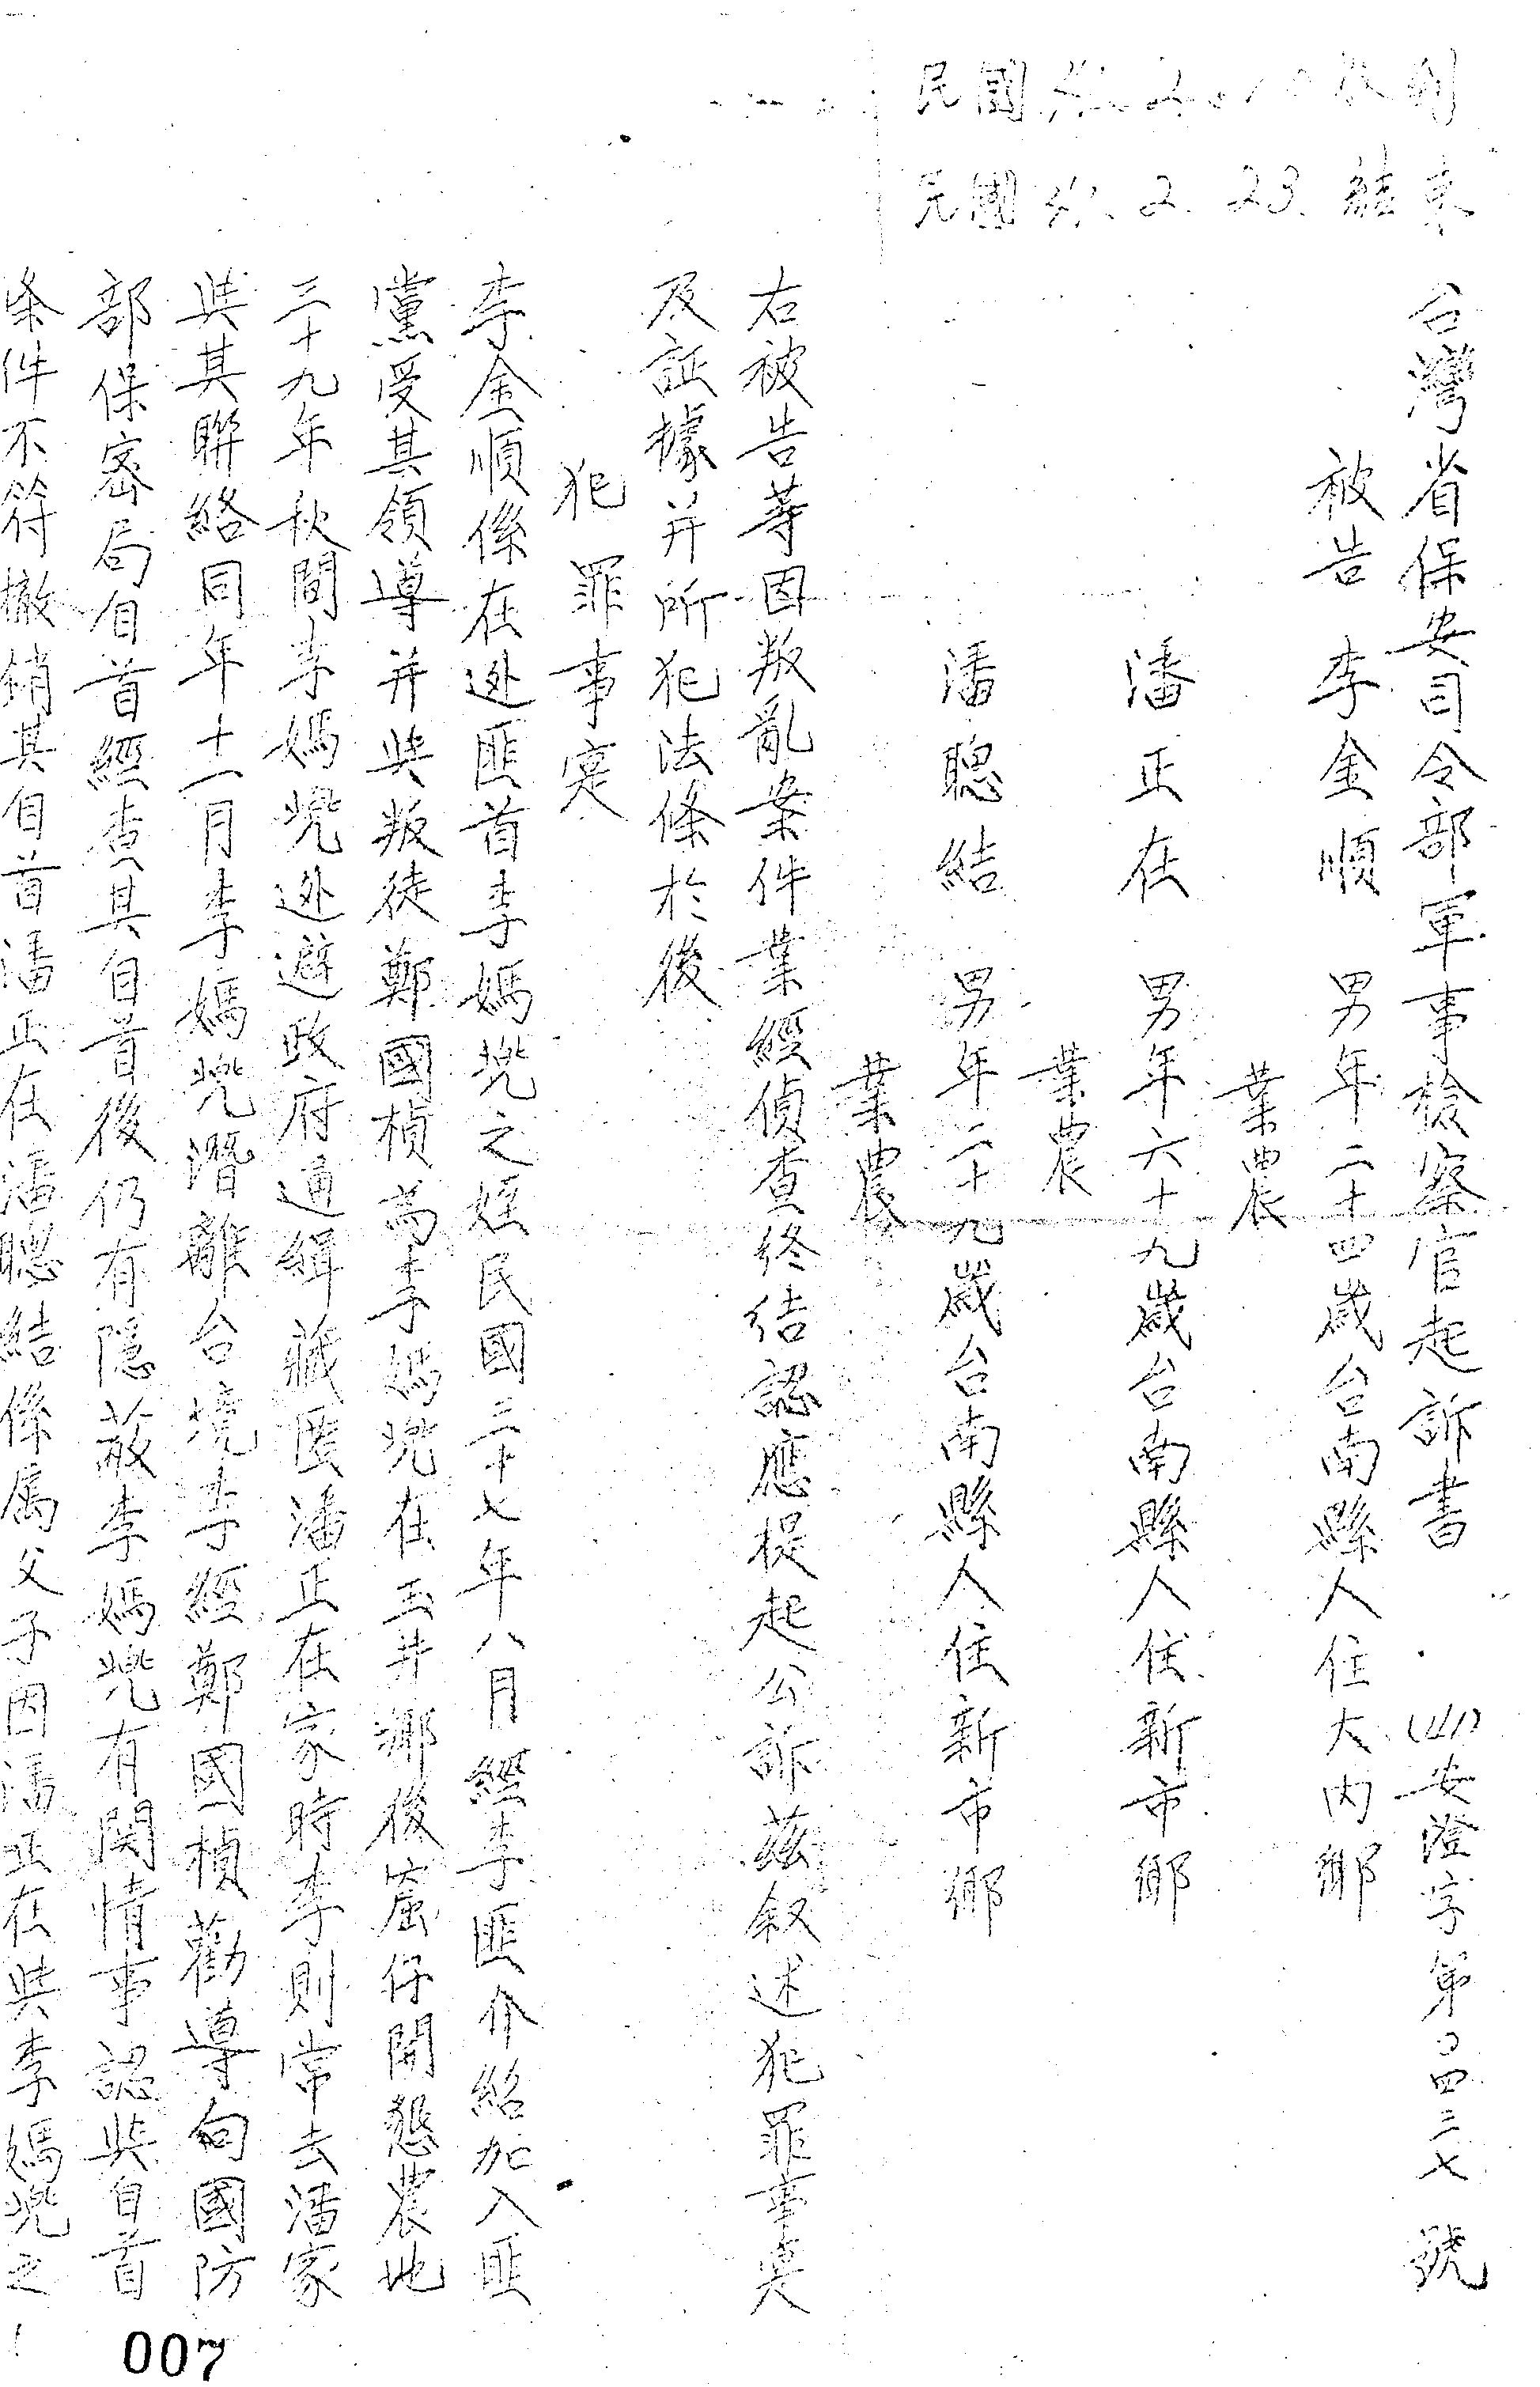 民國 2. 10 收
民國 2. 23. 結束
台灣省保安司令部軍事檢察官起訴書 (41)安澄字第0四三七號
被告 李金順 男年二十四歲台南縣人住大內鄉
業農
潘正在 男年六十九歲台南縣人住新市鄉
業農
潘聰結 男年二十九歲台南縣人住新市鄉
業農
右被告等因叛亂案件業經偵查終結認應提起公訴茲叙述犯罪事寔
及証據并所犯法條於後
犯罪事寔
李金順係在逃匪首李媽兜之姪民國三十七年八月經李匪介紹加入匪
黨受其領導并與叛徒鄭國楨為李媽兜在玉井鄉後窟仔開懇農地
三十九年秋間李媽兜逃避政府通緝藏匿潘正在家時李則常去潘家
與其聯絡同年十一月李媽兜潛離台境李經鄭國楨勸導向國防
部保密局自首經查其自首後仍有隱蔽李媽兜有関情事認與自首
条件不符撤銷其自首潘正在潘聰結係属父子因潘正在與李媽兜之
007